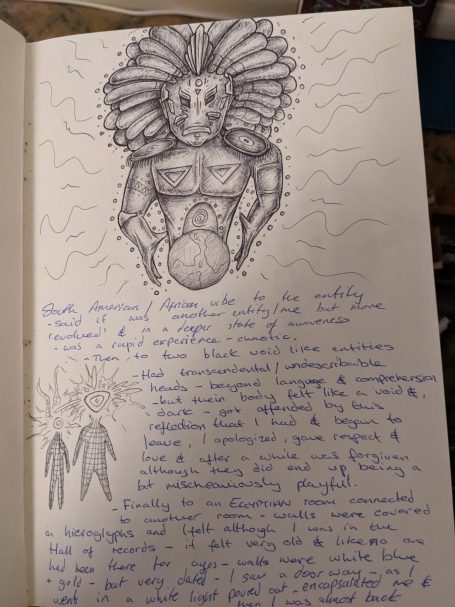 South American / African vibe to the entity
- said it was another entity/me but more
'evolved' & in a deeper state of awareness
- was a rapid experience - chaotic.
- Then, to two black void like entities
- Had transcendental / undescribable
heads - beyond language & comprehension
- but their body felt like a void &
dark - got offended by this
reflection that I had & began to
leave, I apologized, gave respect &
love & after a while was forgiven
although they did end up, being a
bit mischeaviously playful.
- Finally to an EGYPTIAN room connected
to another room - walls were covered
in hieroglyphs and I felt although I was in the
Hall of records - it felt very old & like no one
had been there for ages - walls were white blue
+ gold - but very dated - I saw a doorway - as I
went in a white light poured out - encapsulated me &
then I was almost back